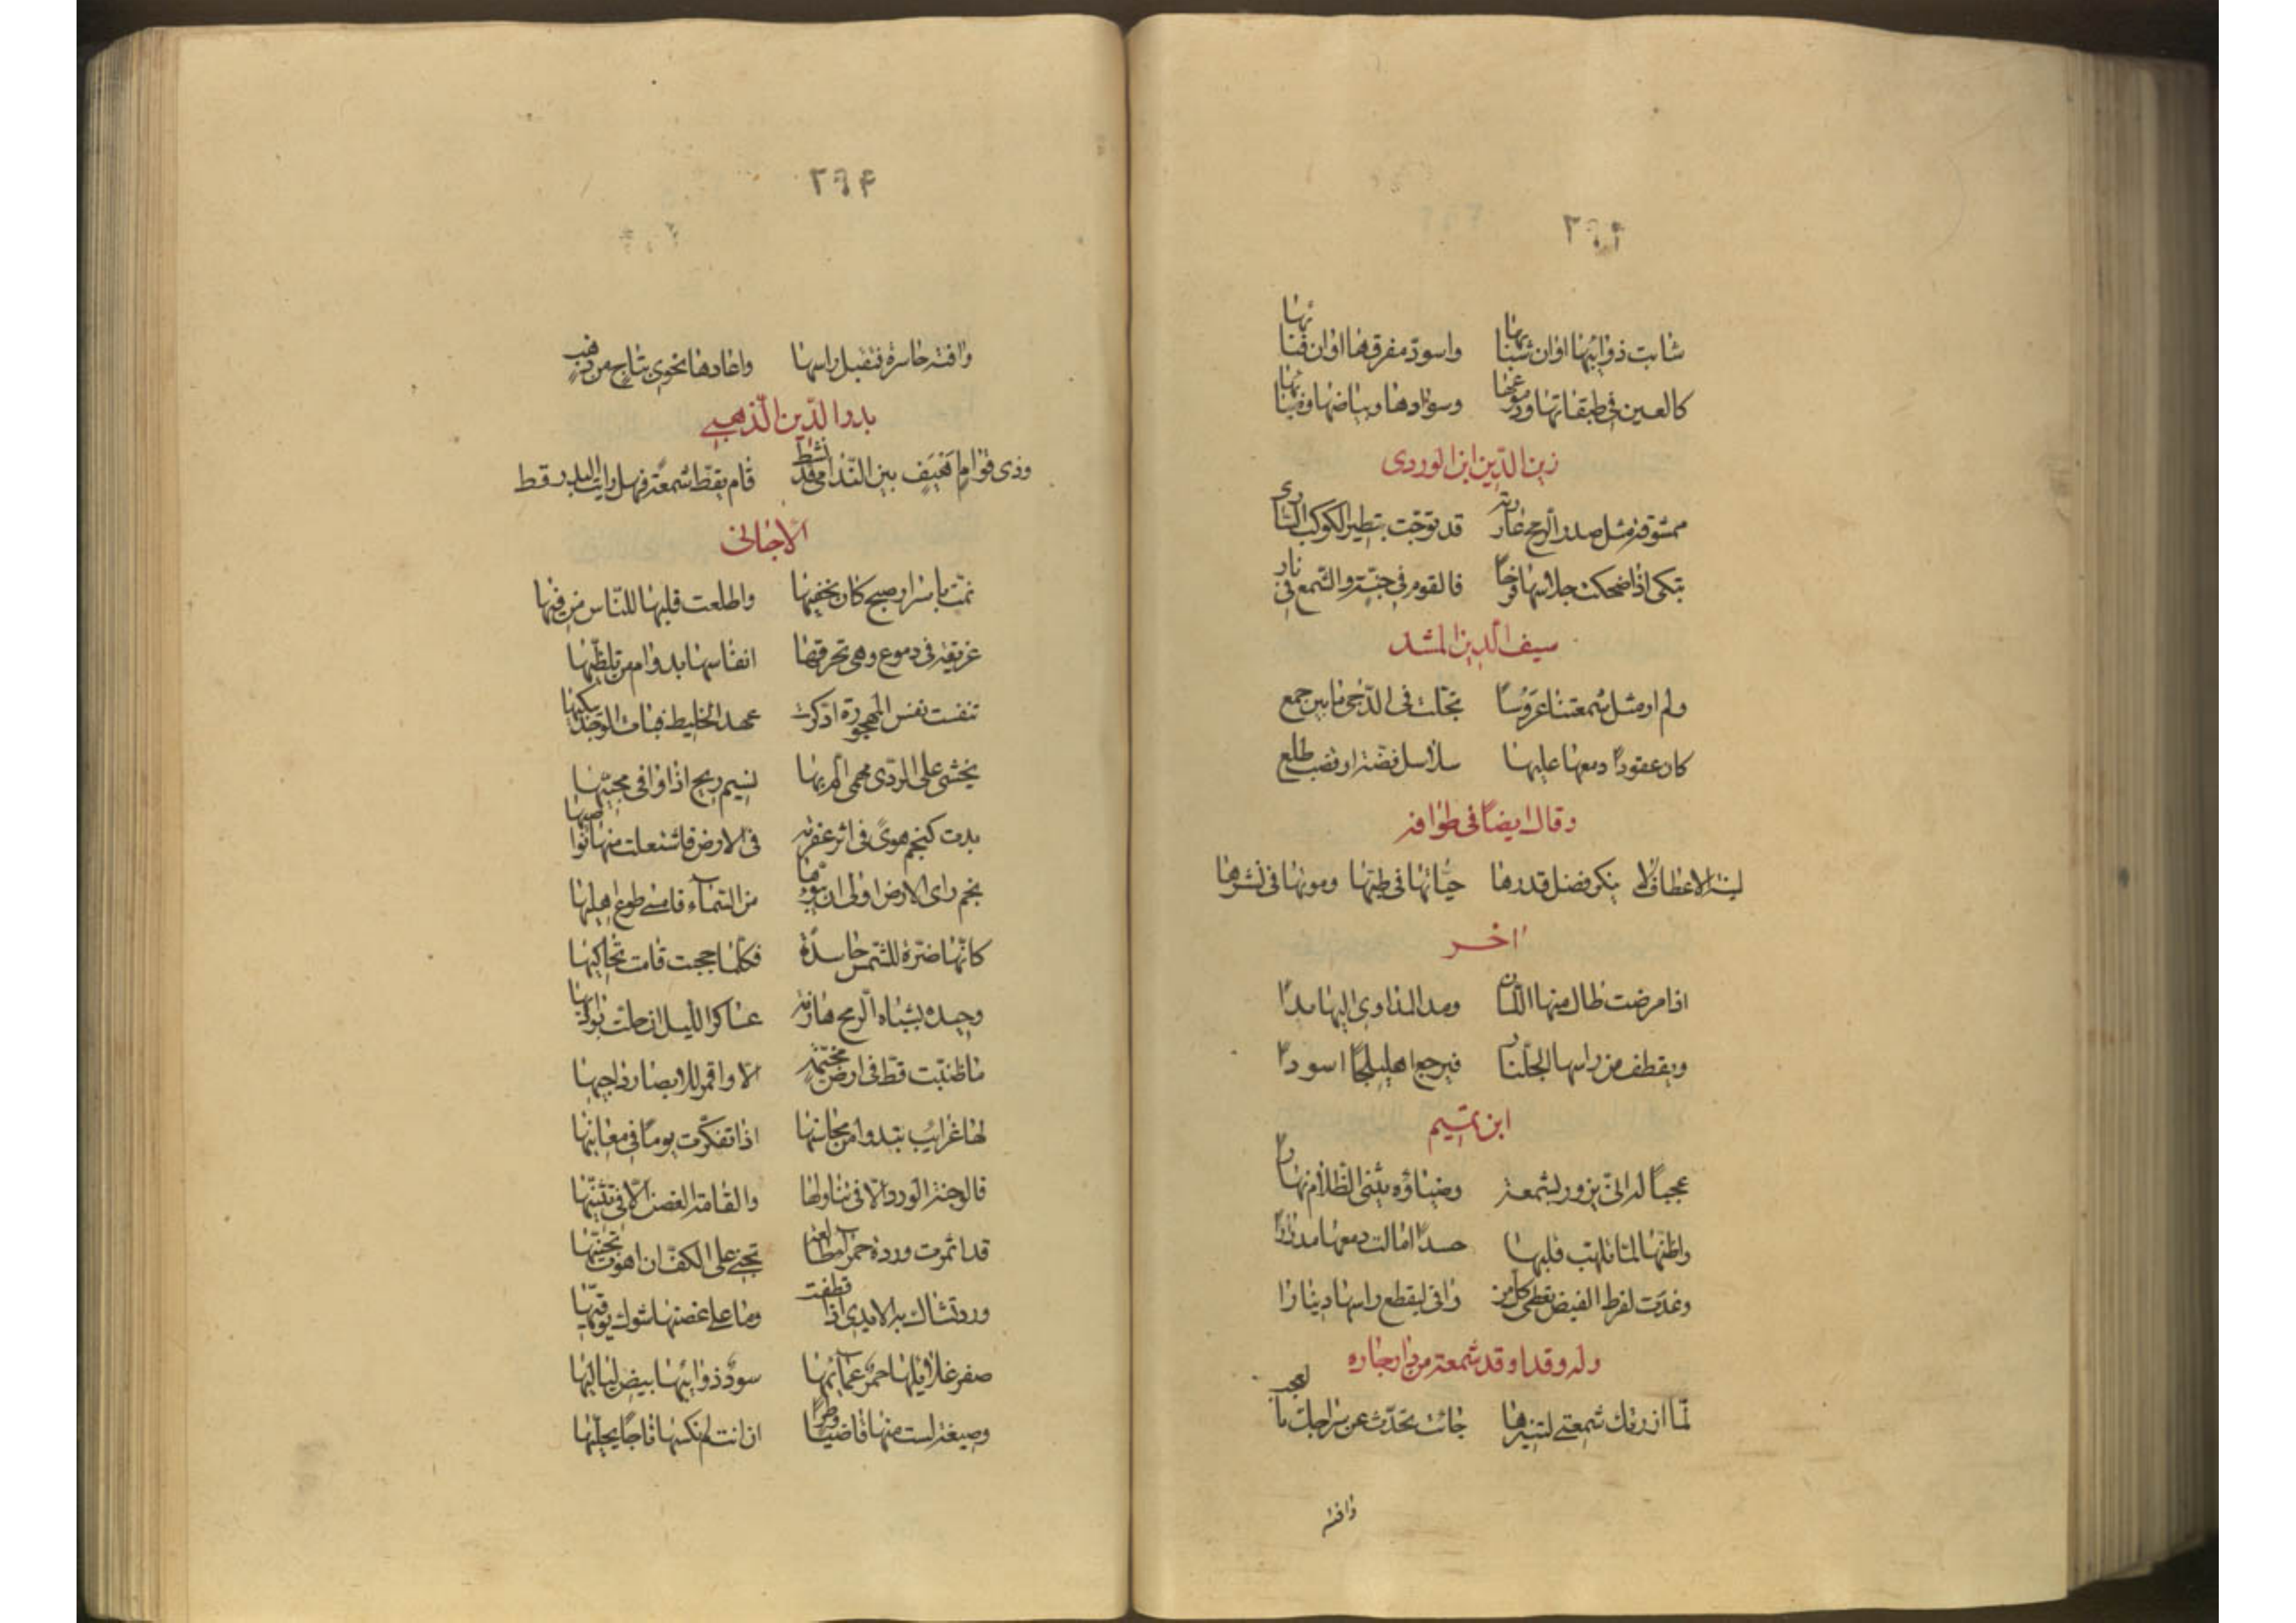 شابت ذوائبها اوان شبابها واسود مفرقها اوان فنائها
كالعين في طبقاتها ودموعها وسوادها وبياضها وضيائها
زين الدين ابن الوردى
ممشوقة مثل صدر الرمح عارية قد توجت الكوكب السارى
تبكى اذا ضحكت جلاسها فرحا فالقوم في جنة والشمع في نار
سيف الدين المشد
ولم ار مثل شمعتنا عروسًا تجلت فى الدجى ما بين جمع
كان عقود دمعها عليها سلاسل فضة او قضب طلع
وقال ايضًا فى طوافة
لينة الاعطاف لا ينكر فضل قدرها حياتها فى طيها وموتها فى نشرها
اخر
اذا مرضت طال منها اللسان ومد المداوى اليها يدًا
ويقطف من راسها الجلنار فيرجع اهليلجًا اسودا
ابن تميم
عجبًا له انى يزور بشمعة وضياؤه يثنى الظلام نهارا
واظنها لما تلهب قلبها حسدًا اسالت دمعها مدرارا
وغدت لفرط الغيض تعطى كل من وافى ليقطع راسها دينارا
وله وقد اوقد شمعة من دار جاره
لما ازرتك شمعتى لتنيرها جائت تحدث عن سراجك بالعجب
وافته
٢٩٤
وافته حاسرة فتقبل راسها واعادها نحوى بتاج من ذهب
بدر الدين الذهبى
وذى قوام اهيف بين الندامى قد نشط قام يقط شمعة فهل رايت البدر قط
الارجانى
نمت باسرار صبح كان يخفيها واطلعت قلبها للناس من فيها
غريقة فى دموع وهى تحرقها انفاسها بدوام من تلظيها
تنفست نفس المهجورة ادكرت عهد الخليط فبات الوجد يبكيها
يخشى على الردى مهما الم بها نسيم ريح اذا وافى يحييها
بدت كنجم هوى فى اثر عفرية فى الارض فاشتعلت منها نواصيها
نجم راى الارض اولى ان من السماء فامسى طوع اهليها
كانها ضرة للشمس حاسدة فكلما حجبت قامت تحاكيها
وحيدة بشباة الرمح هازمة عساكر الليل ان حلت بواديها
ما طنبت قط فى ارض مخيمة الا واقمر للابصار داجيها
لها غرايب تبدوا من محاسنها اذا تفكرت يومًا فى معانيها
فالوجنة الورد الا فى تناولها والقامة الغصن الا فى تثنيها
قد اثمرت وردة حمراء طالعة تجنى على الكف ان اهوت تجنيها
ورد تشاك به الايدى اذا قطفت وما على غصنها شوك يوقيها
صفر غلائلها حمر عمآئمها سود ذوائبها بيض لياليها
وصيغة لست منها قاضيًا وطرًا ان انت لم تكسها تاجًا يحليها